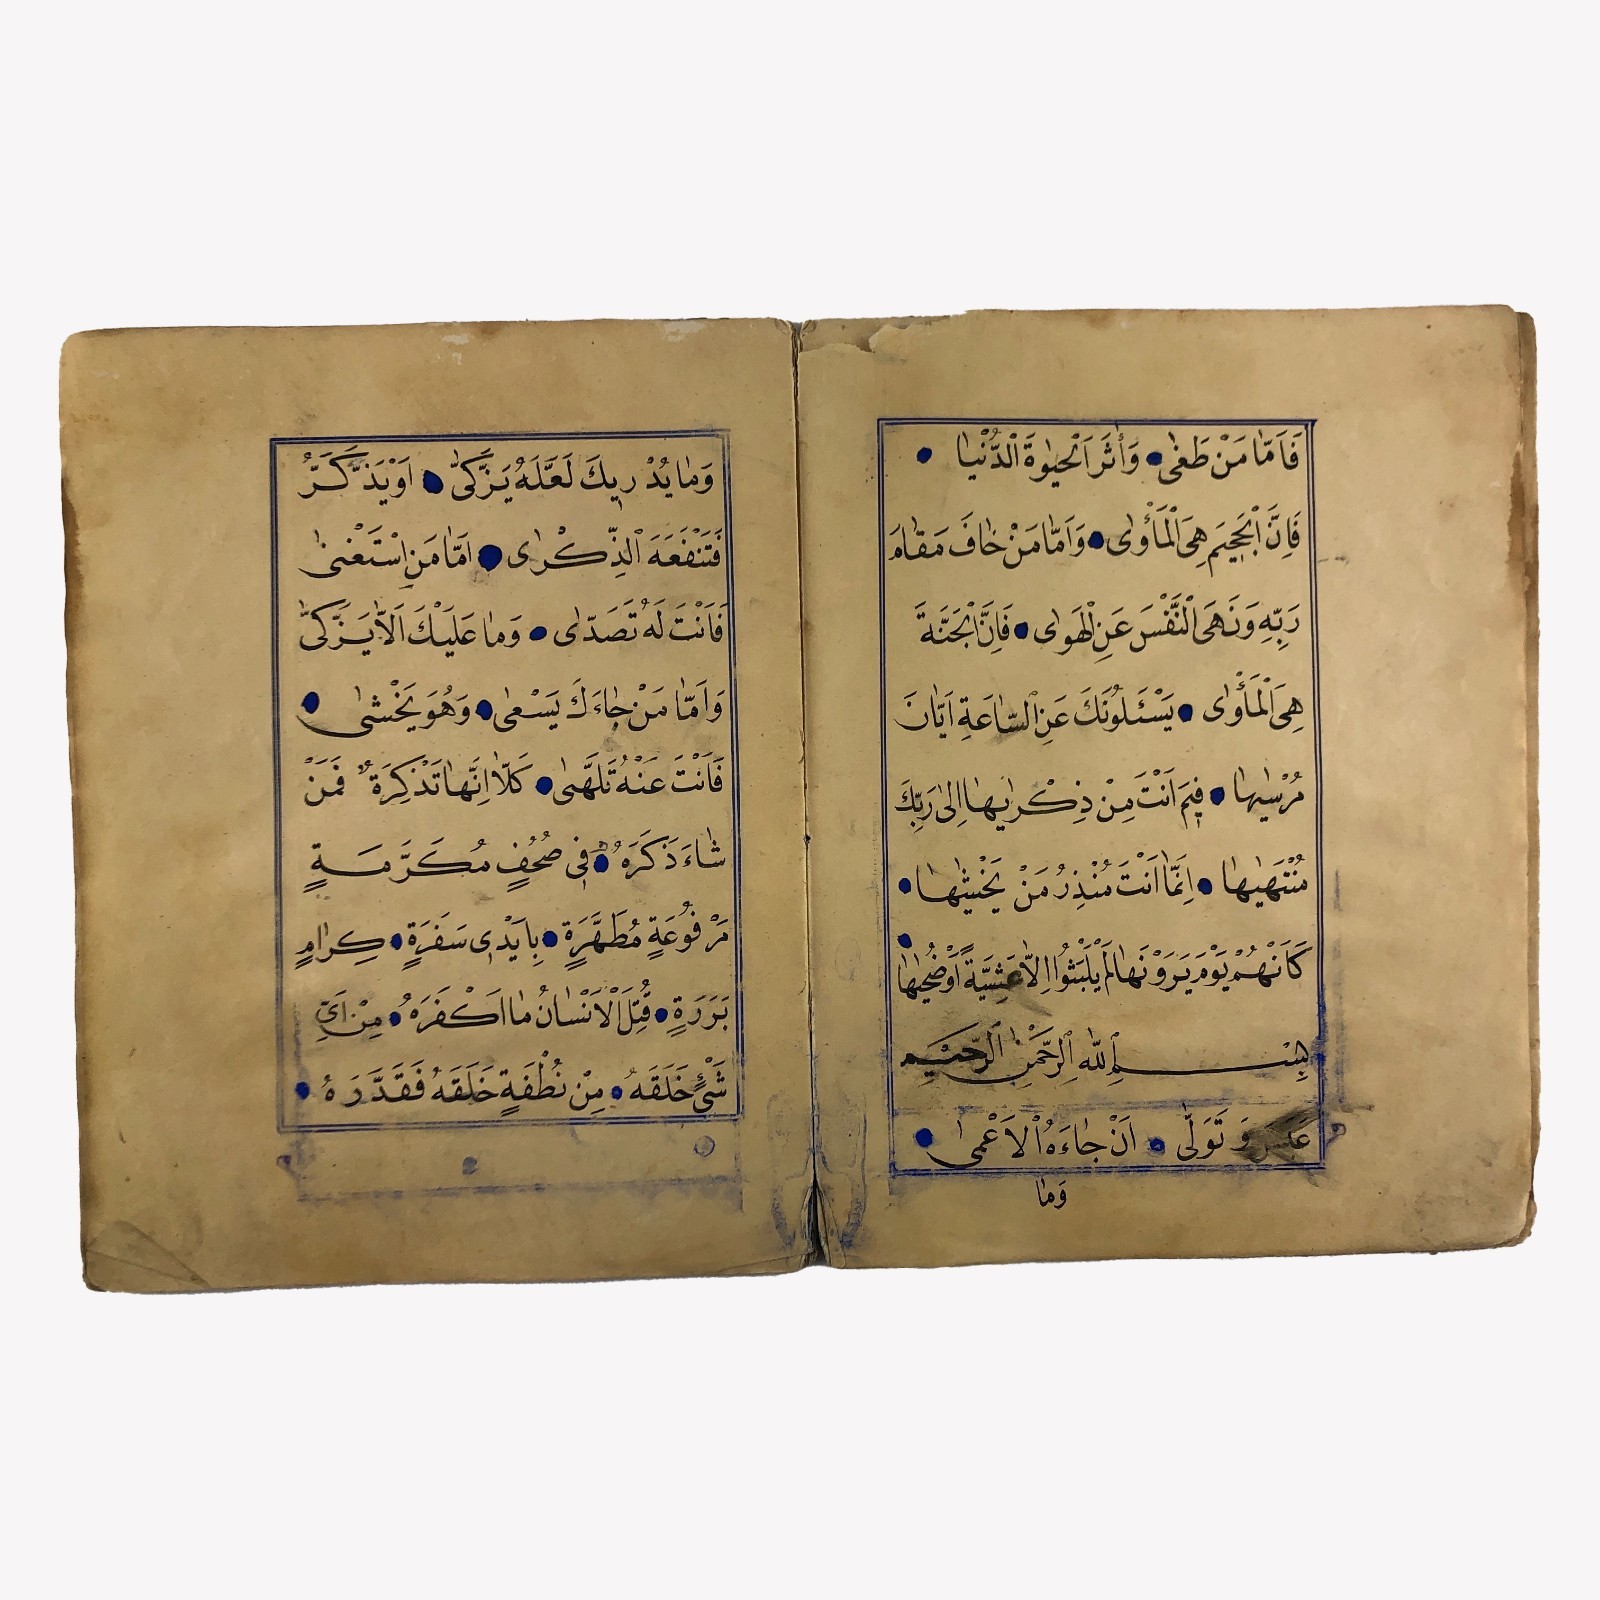 فَاَمَّا مَنْ طَغٰى وَاٰثَرَ الْحَيٰوةَ الدُّنْيَا
فَاِنَّ الْجَحِيمَ هِىَ الْمَأْوٰى وَاَمَّا مَنْ خَافَ مَقَامَ
رَبِّهِ وَنَهَى النَّفْسَ عَنِ الْهَوٰى فَاِنَّ الْجَنَّةَ
هِىَ الْمَأْوٰى يَسْئَلُونَكَ عَنِ السَّاعَةِ اَيَّانَ
مُرْسٰيهَا فِيمَ اَنْتَ مِنْ ذِكْرٰيهَا اِلٰى رَبِّكَ
مُنْتَهٰيهَا اِنَّمَا اَنْتَ مُنْذِرُ مَنْ يَخْشٰيهَا
كَاَنَّهُمْ يَوْمَ يَرَوْنَهَا لَمْ يَلْبَثُوا اِلَّا عَشِيَّةً اَوْ ضُحٰيهَا
بِسْمِ اللّٰهِ الرَّحْمٰنِ الرَّحِيمِ
عَبَسَ وَ تَوَلّٰى اَنْ جَاءَهُ الْاَعْمٰى
وَمَا
وَمَا يُدْرِيكَ لَعَلَّهُ يَزَّكّٰى اَوْ يَذَّكَّرُ
فَتَنْفَعَهُ الذِّكْرٰى اَمَّا مَنِ اسْتَغْنٰى
فَاَنْتَ لَهُ تَصَدّٰى وَمَا عَلَيْكَ اَلَّا يَزَّكّٰى
وَاَمَّا مَنْ جَاءَكَ يَسْعٰى وَهُوَ يَخْشٰى
فَاَنْتَ عَنْهُ تَلَهّٰى كَلَّا اِنَّهَا تَذْكِرَةٌ فَمَنْ
شَاءَ ذَكَرَهُ فِى صُحُفٍ مُكَرَّمَةٍ
مَرْفُوعَةٍ مُطَهَّرَةٍ بِاَيْدِى سَفَرَةٍ كِرَامٍ
بَرَرَةٍ قُتِلَ الْاِنْسَانُ مَا اَكْفَرَهُ مِنْ اَىِّ
شَىْءٍ خَلَقَهُ مِنْ نُطْفَةٍ خَلَقَهُ فَقَدَّرَهُ